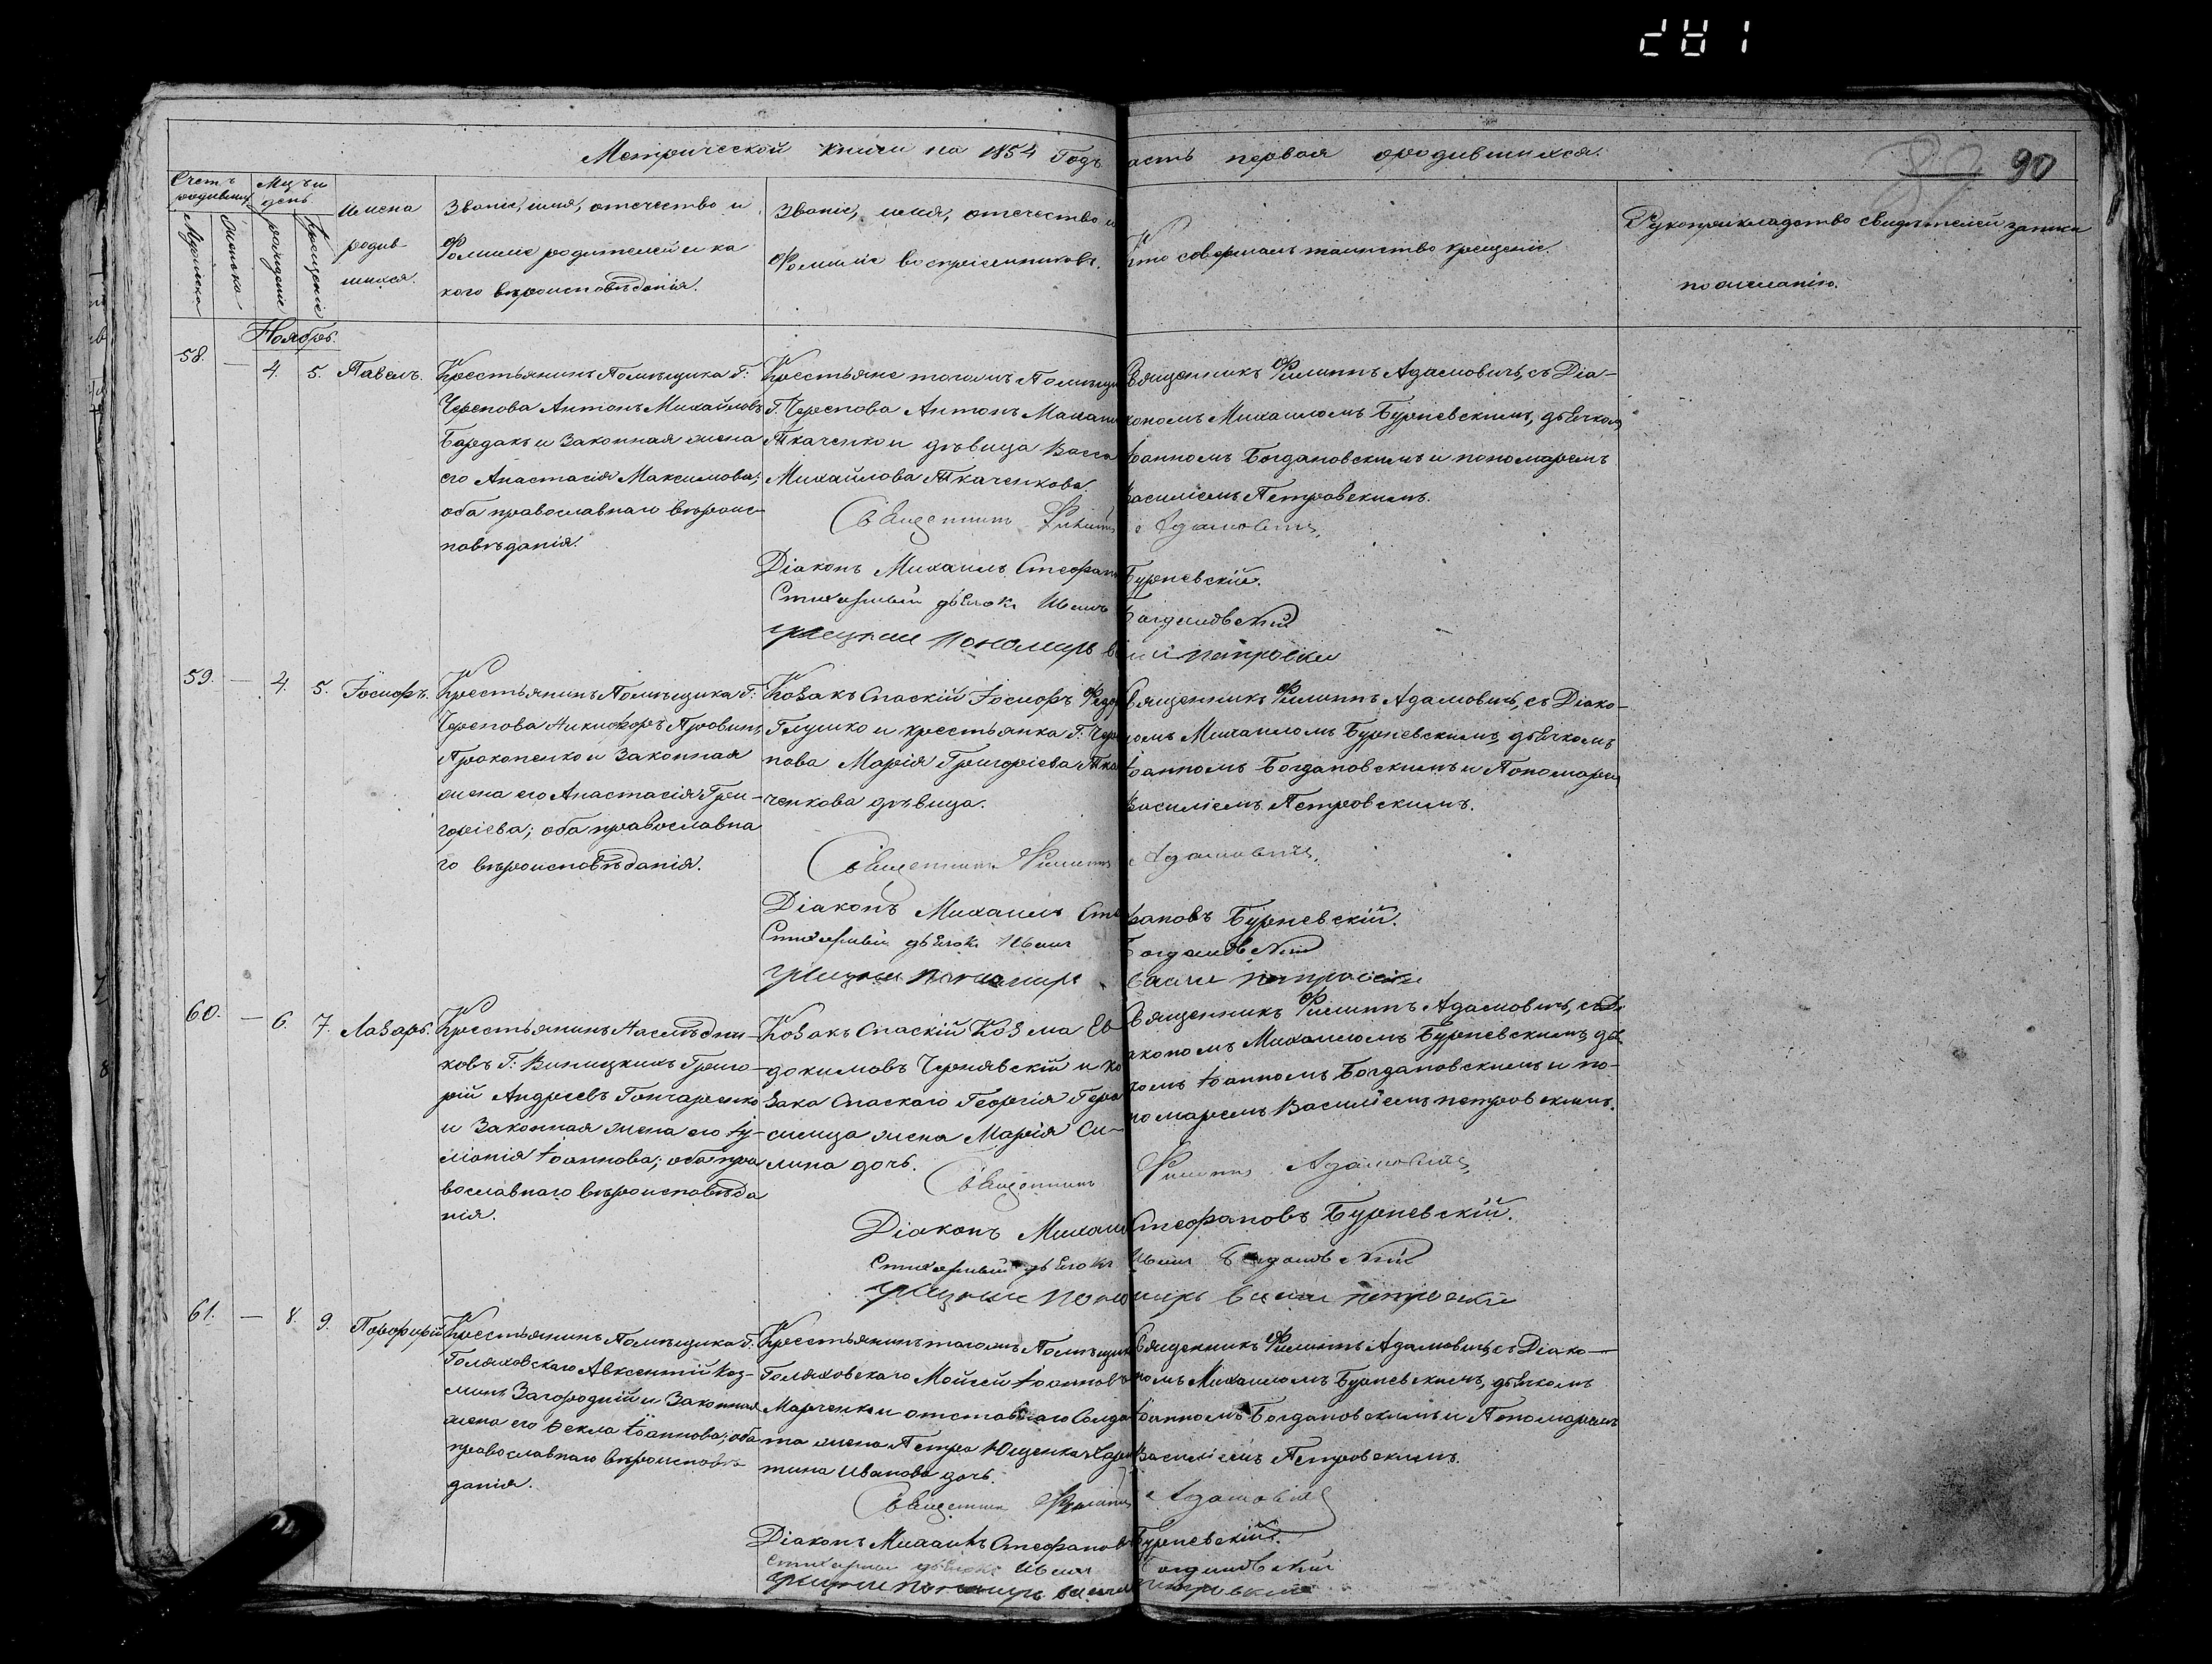 Метрической книги на 1854 Годъ
асть первая ородившихся.
89 90
Счетъ родившихся
Мужеска
Женска
Мцъ и день
рожденіе
Крещеніе
Имена родив-
шихся.
Званіе, имя, отечество и
Фамиліе родителей и ка
кого вѣроисповѣданія.
Званіе, имя, отечество и
Фамиліе воспріемниковъ.
Кто совершалъ таинство крещеніе.
Рукоприкладство свидѣтелей записи
по желанію.
Ноябрь.
58. — 4. 5. Павелъ.
Крестьянинъ Помѣщика Г:
Черепова Антонъ Михайловъ
Бардакъ и Законная жена
его Анастасія Максимова;
оба православнаго вѣроис-
повѣданія.
Крестьяне тогожъ Помѣщи
Г. Черепова Антонъ
Ткаченко и дѣвица Васса
Михайлова Ткаченкова.
Священникъ Филиппъ Адамовичь, съ Діа-
кономъ Михаиломъ Бурневскимъ, дьячкомъ
Іоанномъ Богдановскимъ и пономаремъ
Василіемъ Петровскимъ.
Священникъ Филиппъ Адамовичъ
Діаконъ Михаилъ Стефан Бурневскій.
Стихарный дьячокъ Иванъ Богдановскій
Пономарь Петровски
59. — 4. 5. Іосифъ.
Крестьянинъ Помѣщика Г:
Черепова Никифоръ
Прокопенко и Законная
жена его Анастасія Гри-
горіева; оба православна
го вѣроисповѣданія.
Козакъ Спаскій Іосифъ Федо
Глушко и крестьянка Г: Чере
пова Марія Григоріева Тка
ченкова дѣвица.
Священникъ Филиппъ Адамовичь, съ Діако-
номъ Михаиломъ Бурневскимъ, дьячкомъ
Іоанномъ Богдановскимъ и Пономаремъ
Василіемъ Петровскимъ.
Священникъ Филиппъ Адамовичъ
Діаконъ Михаилъ Сте фановъ Бурневскій.
Стихарный дьячокъ Иванъ Богдановскій
пономарь Васили петровски
60. — 6. 7. Лазарь.
Крестьянинъ Наслѣдни-
ковъ Г: Виницкихъ Григо-
рій Андреевъ Гончаренко
и Законная жена его Іу-
ліанія Іоаннова; оба пра
вославнаго вѣроисповѣда
нія.
Козакъ Спаскій Козма Ев
докимовъ Чернявскій и ко
зака Спаскаго Георгія Гера
симца жена Марія Си-
лина дочь.
Священникъ Филиппъ Адамовичь, съ Ді
акономъ Михаиломъ Бурневскимъ, дья
комъ Іоанномъ Богдановскимъ и по-
номаремъ Василіемъ петровскимъ.
Священникъ Филиппъ Адамовичъ
Діаконъ Михаил Стефановъ Бурневскій.
Стихарный дьячокъ Иванъ Богдановскій
Пономарь Васили петровски
61. — 8. 9. Порфирій
Крестьянинъ Помѣщика Г:
Голяховскаго Авксентій Коз-
минъ Загородній и Законная
жена его Ѳекла Іоаннова; оба
православнаго вѣроисповѣ
данія.
Крестьянинъ тогожъ Помѣщик
Голяховскаго Мойсей Іоанновъ
Марченко и отставнаго Солда
та жена Петра Ющенка Хари
тина Иванова дочь.
Священникъ Филиппъ Адамовичь, съ Діако-
номъ Михаиломъ Бурневскимъ, дьячкомъ
Іоанномъ Богдановскимъ и Пономаремъ
Василіемъ Петровскимъ.
Священникъ Филиппъ Адамовичъ
Діаконъ Михаилъ Стефановъ Бурневскій.
Стихарный дьячокъ Иванъ Богдановскій
пономарь Васили петровски